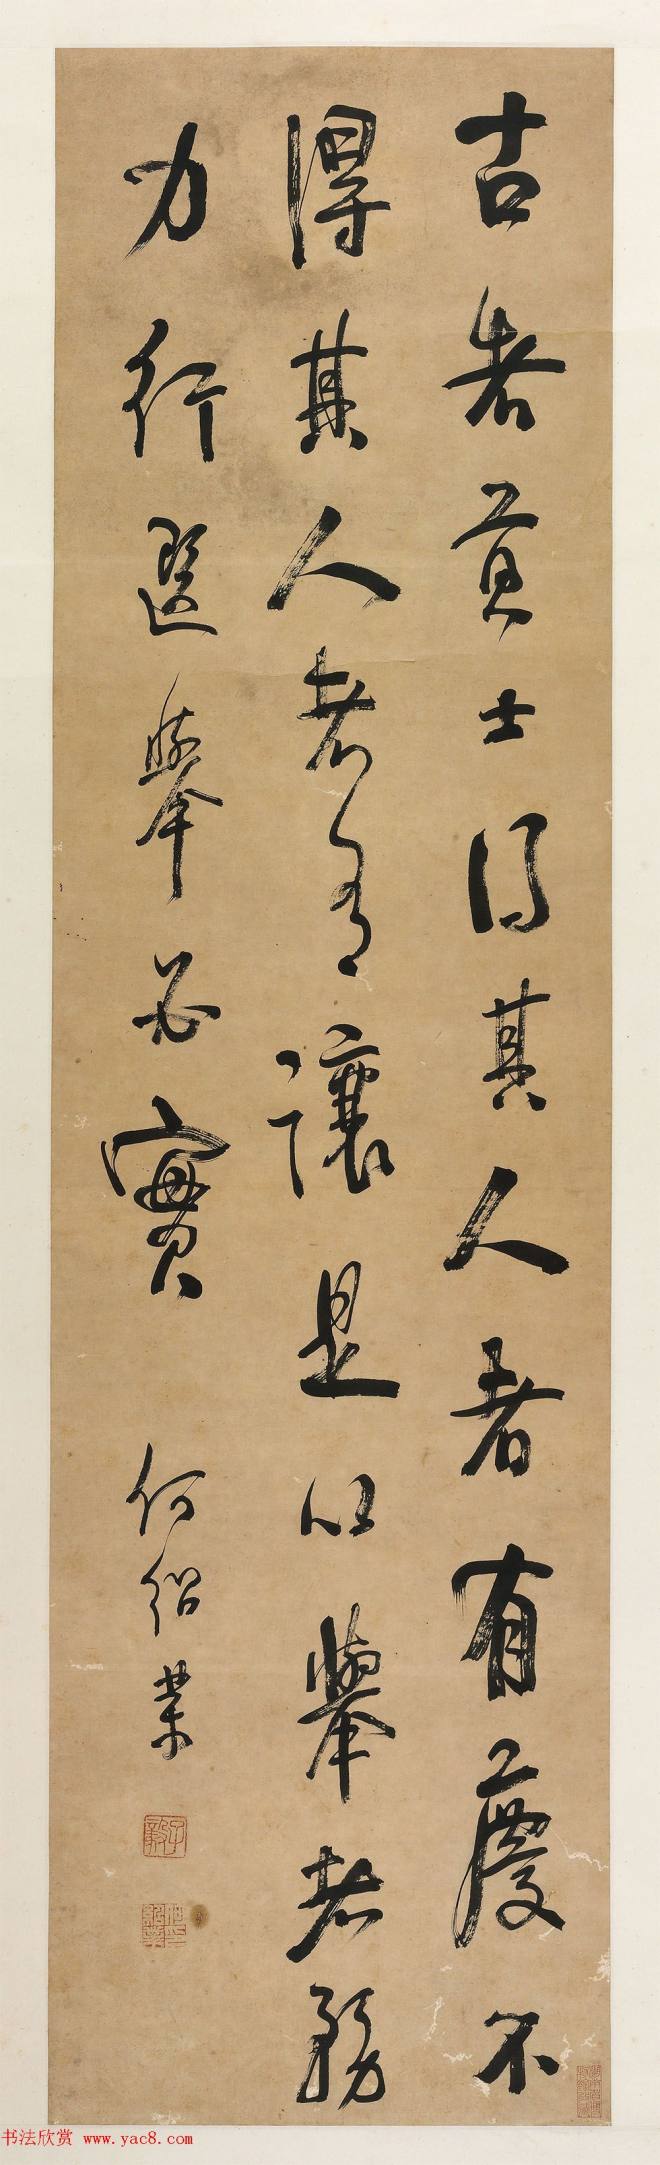 古者贡士得其人者有慶不
得其人者有讓是以舉者務
力行選舉必實
何紹業
子毅
何印紹業
书法欣赏 www.yac8.com